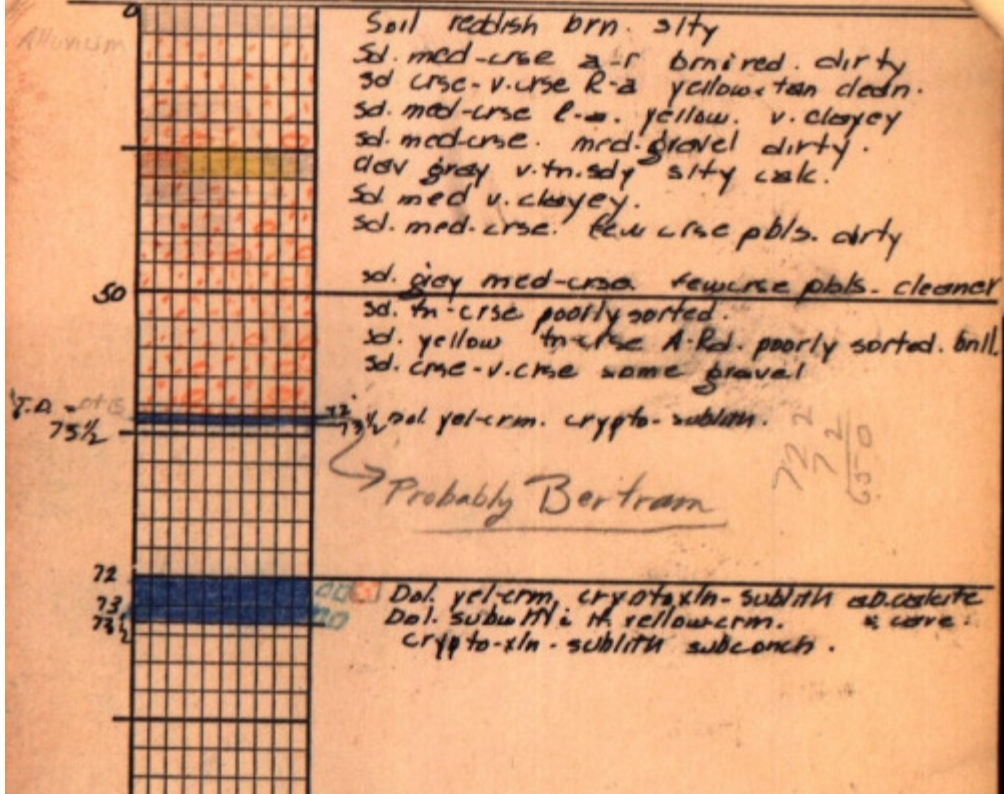 0
Alluvium
Soil reddish brn. slty
Sd. med-crse a-r brn:red. dirty
sd crse-v.crse R-a yellow-tan clean.
sd. med-crse yellow. v. clayey
sd. med-crse. med. gravel dirty.
clay gray v.fn.sdy slty calc.
Sd. med v. clayey.
sd. med. crse. few crse pbls. dirty
sd. gray med-crse few crse pbls. cleaner
50
sd. fn-crse poorly sorted.
sd. yellow fn-crse A-Rd. poorly sorted.
sd. crse-v.crse some gravel
T.D. - Otis
73½
72
73½ Dol. yel-crm. crypto-sublith.
722
72
650
Probably Bertram
72
Dol. yel-crm, cryptoxln-sublith
73
Dol. yellow crm.
73½
crypto-xln-sublith subconch.